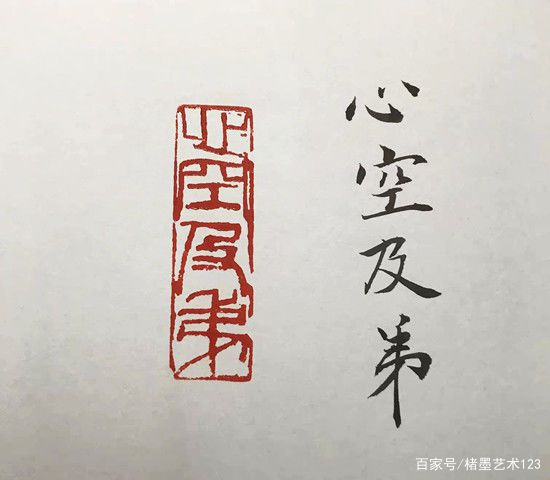 心空及弟
心空及弟
百家号/楮墨艺术123